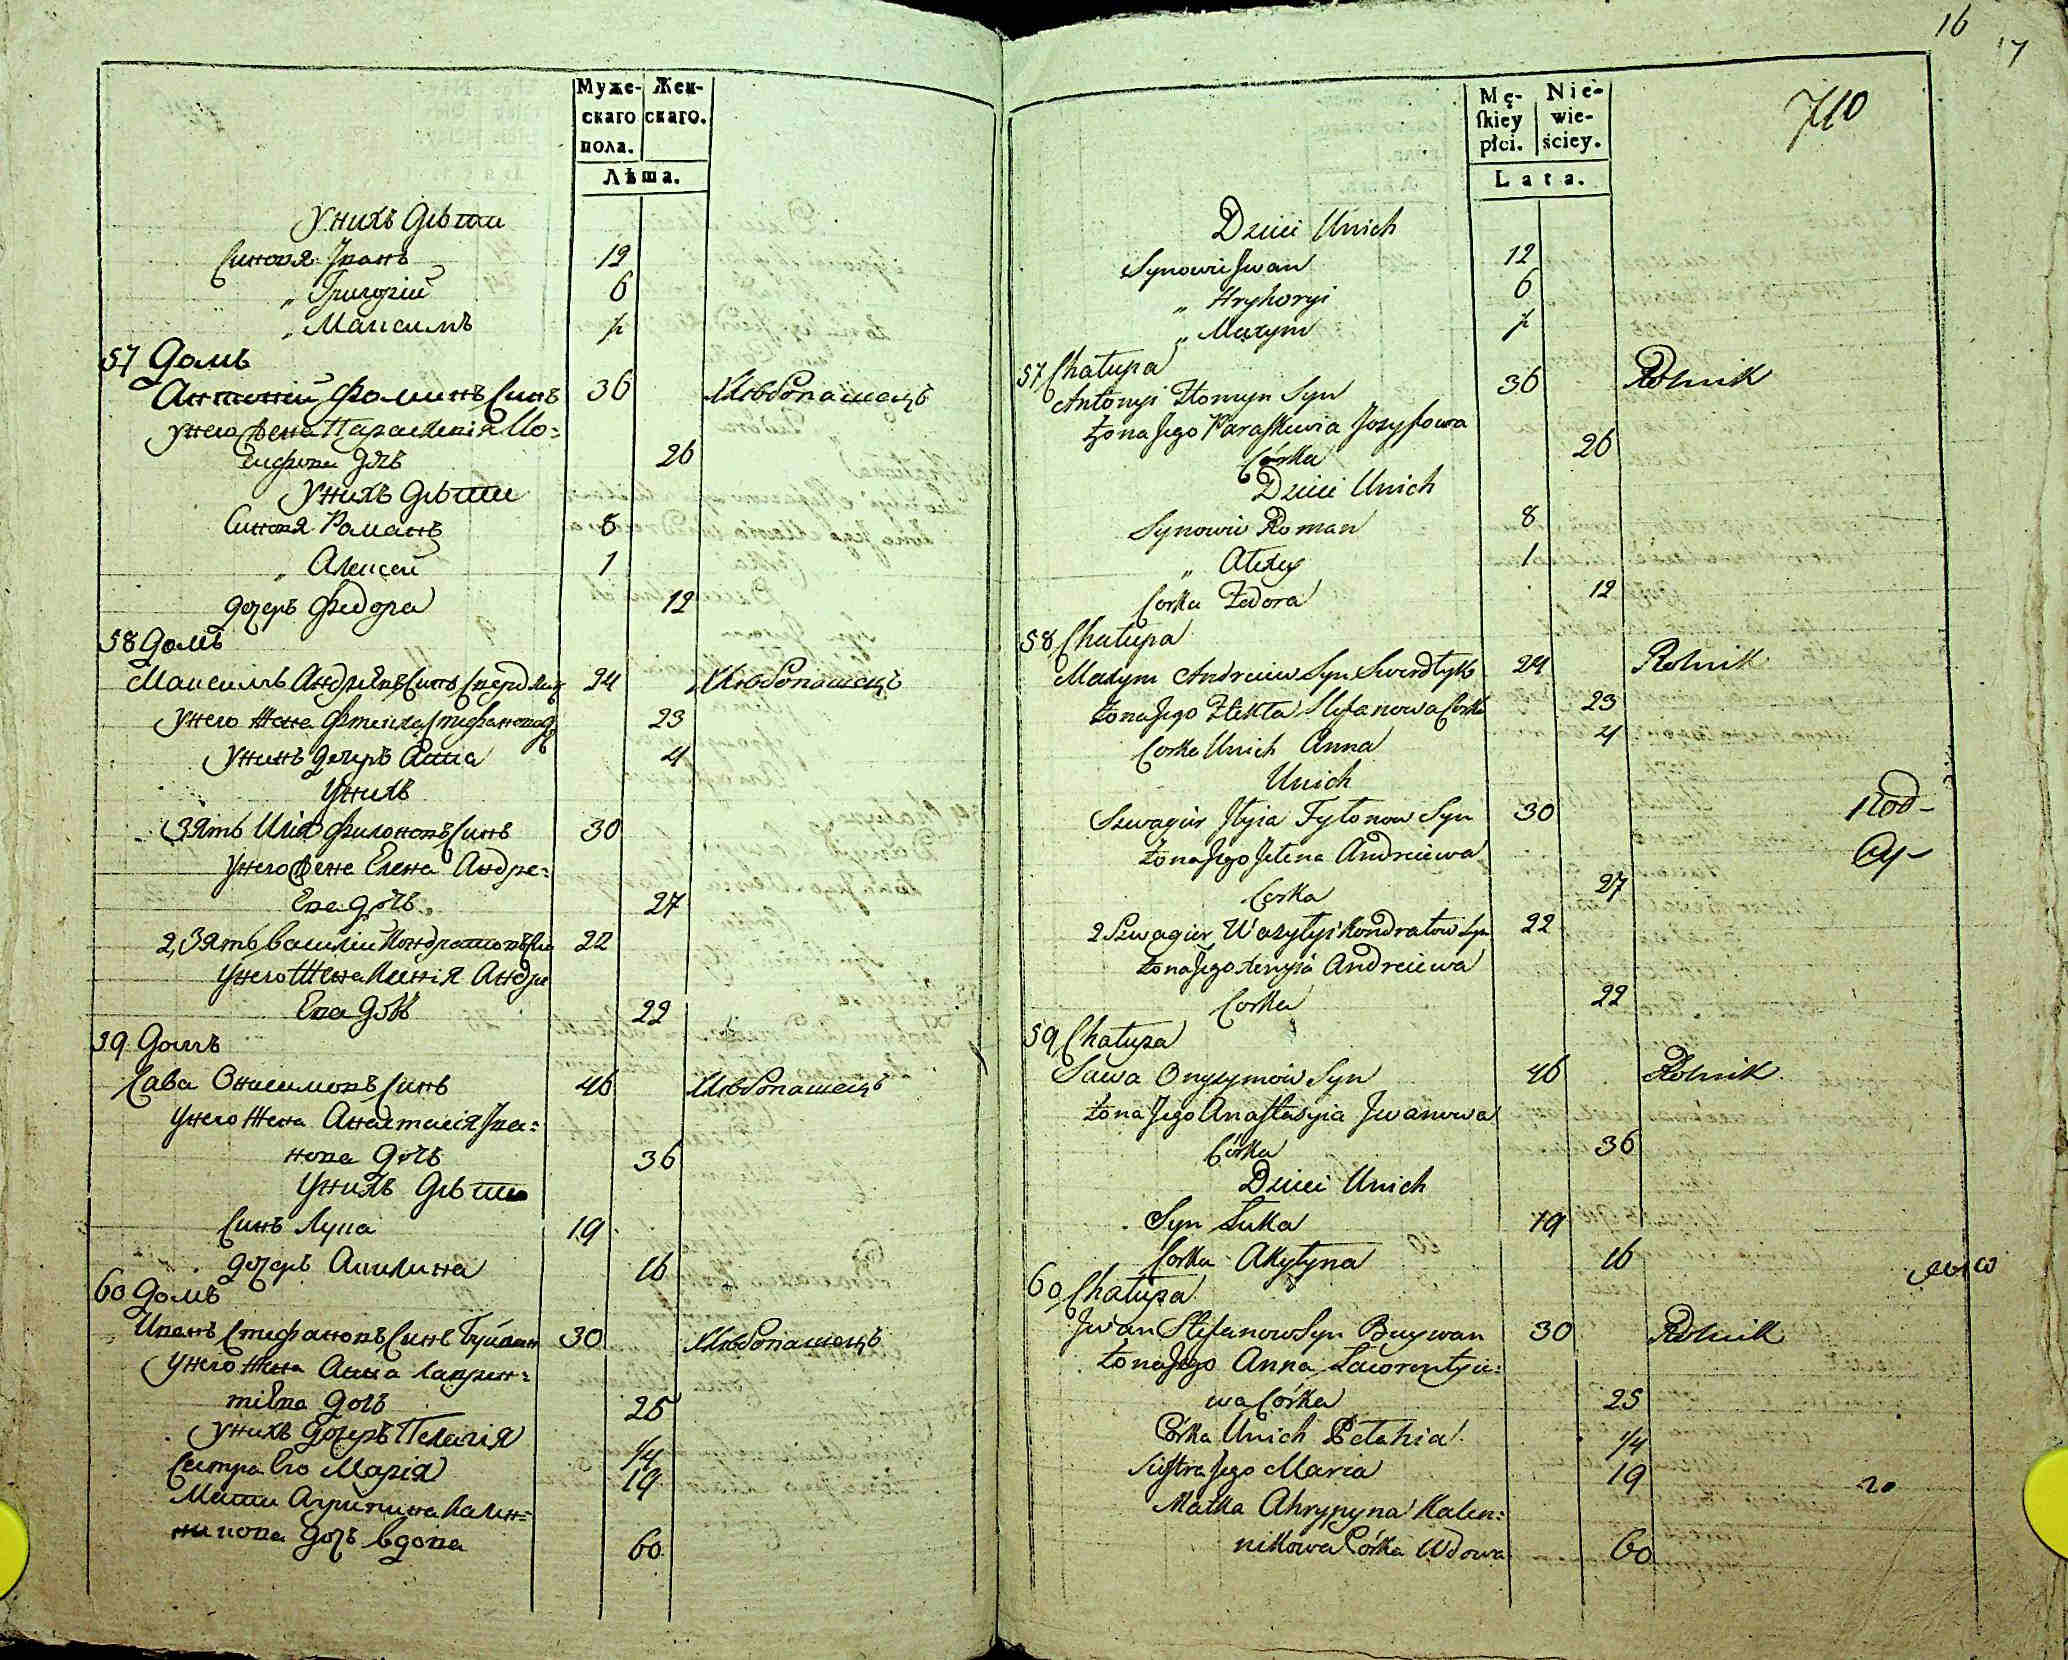 Муже-
скаго
пола.
Жен-
скаго.
Лѣта.
Унихъ Дѣти
Синовя Иванъ 12
„ Григорій 6
„ Максимъ ½
57 Домъ
Антоній Фоминъ Синъ 36 Хлѣбопашецъ
Унего Жена Параскевія Ио=
сифова Дочь 26
Унихъ Дѣти
Синовя Романъ 8
„ Алексей 1
дочерь Федора 12
58 Домъ
Максимъ Андреевъ Синъ Свердлик 24 Хлѣбопашецъ
Унего Жена Фтекла Стифанова 23
Унихъ дочерь Анна 4
Унихъ
Зять Илія Филоновъ Синъ 30
Унего Жена Елена Андре=
Ева дочь 27
2, Зять Василій Кондратовъ 22
Унего Жена Ксенія Андре
Ева дочь 22
59 Домъ
Сава Онисимовъ Синъ 46 Хлѣбопашецъ
Унего Жена Анастасія Ива=
нова дочь 36
Унихъ Дѣти
Синъ Лука 19
дочерь Акилина 16
60 Домъ
Иванъ Стифановъ Синъ Буйван 30 Хлѣбопашецъ
Унего Жена Анна Лаврен=
тіева дочь 25
Унихъ дочерь Пелагія ¼
Сестра Его Марія 19
Мати Агрипина Калин=
никова дочь вдова 60
16
17
710
Mę-
ſkiey
płci.
Nie-
wie-
ściey.
Lata.
Dzieci Unich
Synowie Jwan 12
„ Hryhoryi 6
„ Maxym ½
57 Chałupa
Antonyi Fłomyn Syn 36 Rolnik
Żona Jego Paraſkewia Jozyfowa
Córka 26
Dzieci Unich
Synowie Roman 8
„ Alexey 1
Corka Fedora 12
58 Chałupa
Maxym Andreiew Syn Swerdłyk 24 Rolnik
Żona Jego Ftekła Stefanowa Corka 23
Corka Unich Anna 4
Unich
Szwagier Jlyia Fyłonow Syn 30
Żona Jego Jelena Andreiewa
Corka 27
2 Szwagier Wasylyi Kondratow Syn 22
Żona Jego Xenyia Andreiewa
Corka 22
59 Chałupa
Sawa Onyzymow Syn 46 Rolnik
Żona Jego Anaſtasyia Jwanowa
Córka 36
Dzieci Unich
Syn Łuka 19
Corka Akylyna 16
60 Chałupa
Jwan Stefanow Syn Buywan 30 Rolnik
Żona Jego Anna Ławrentyie=
wa Córka 25
Córka Unich Pelahia ¼
Sieſtra Jego Maria 19
Matka Ahrypyna Kalen=
nikowa Córka Wdowa 60